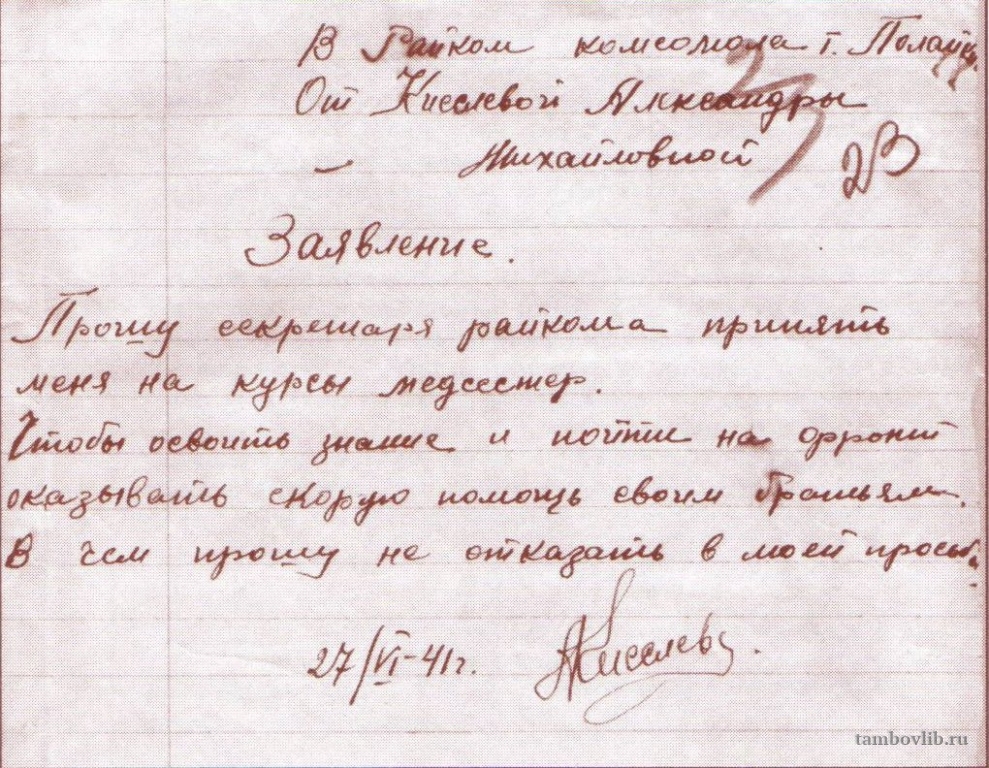 В Райком комсомола г.
От Киселевой Александры
– Михайловной
23
Заявление.
Прошу секретаря райкома принять
меня на курсы медсестер.
Чтобы освоить знание и пойти на фронт
оказывать скорую помощь своим братьям.
В чем прошу не отказать в моей просьбе.
27/VI-41г. АКиселева.
tambovlib.ru